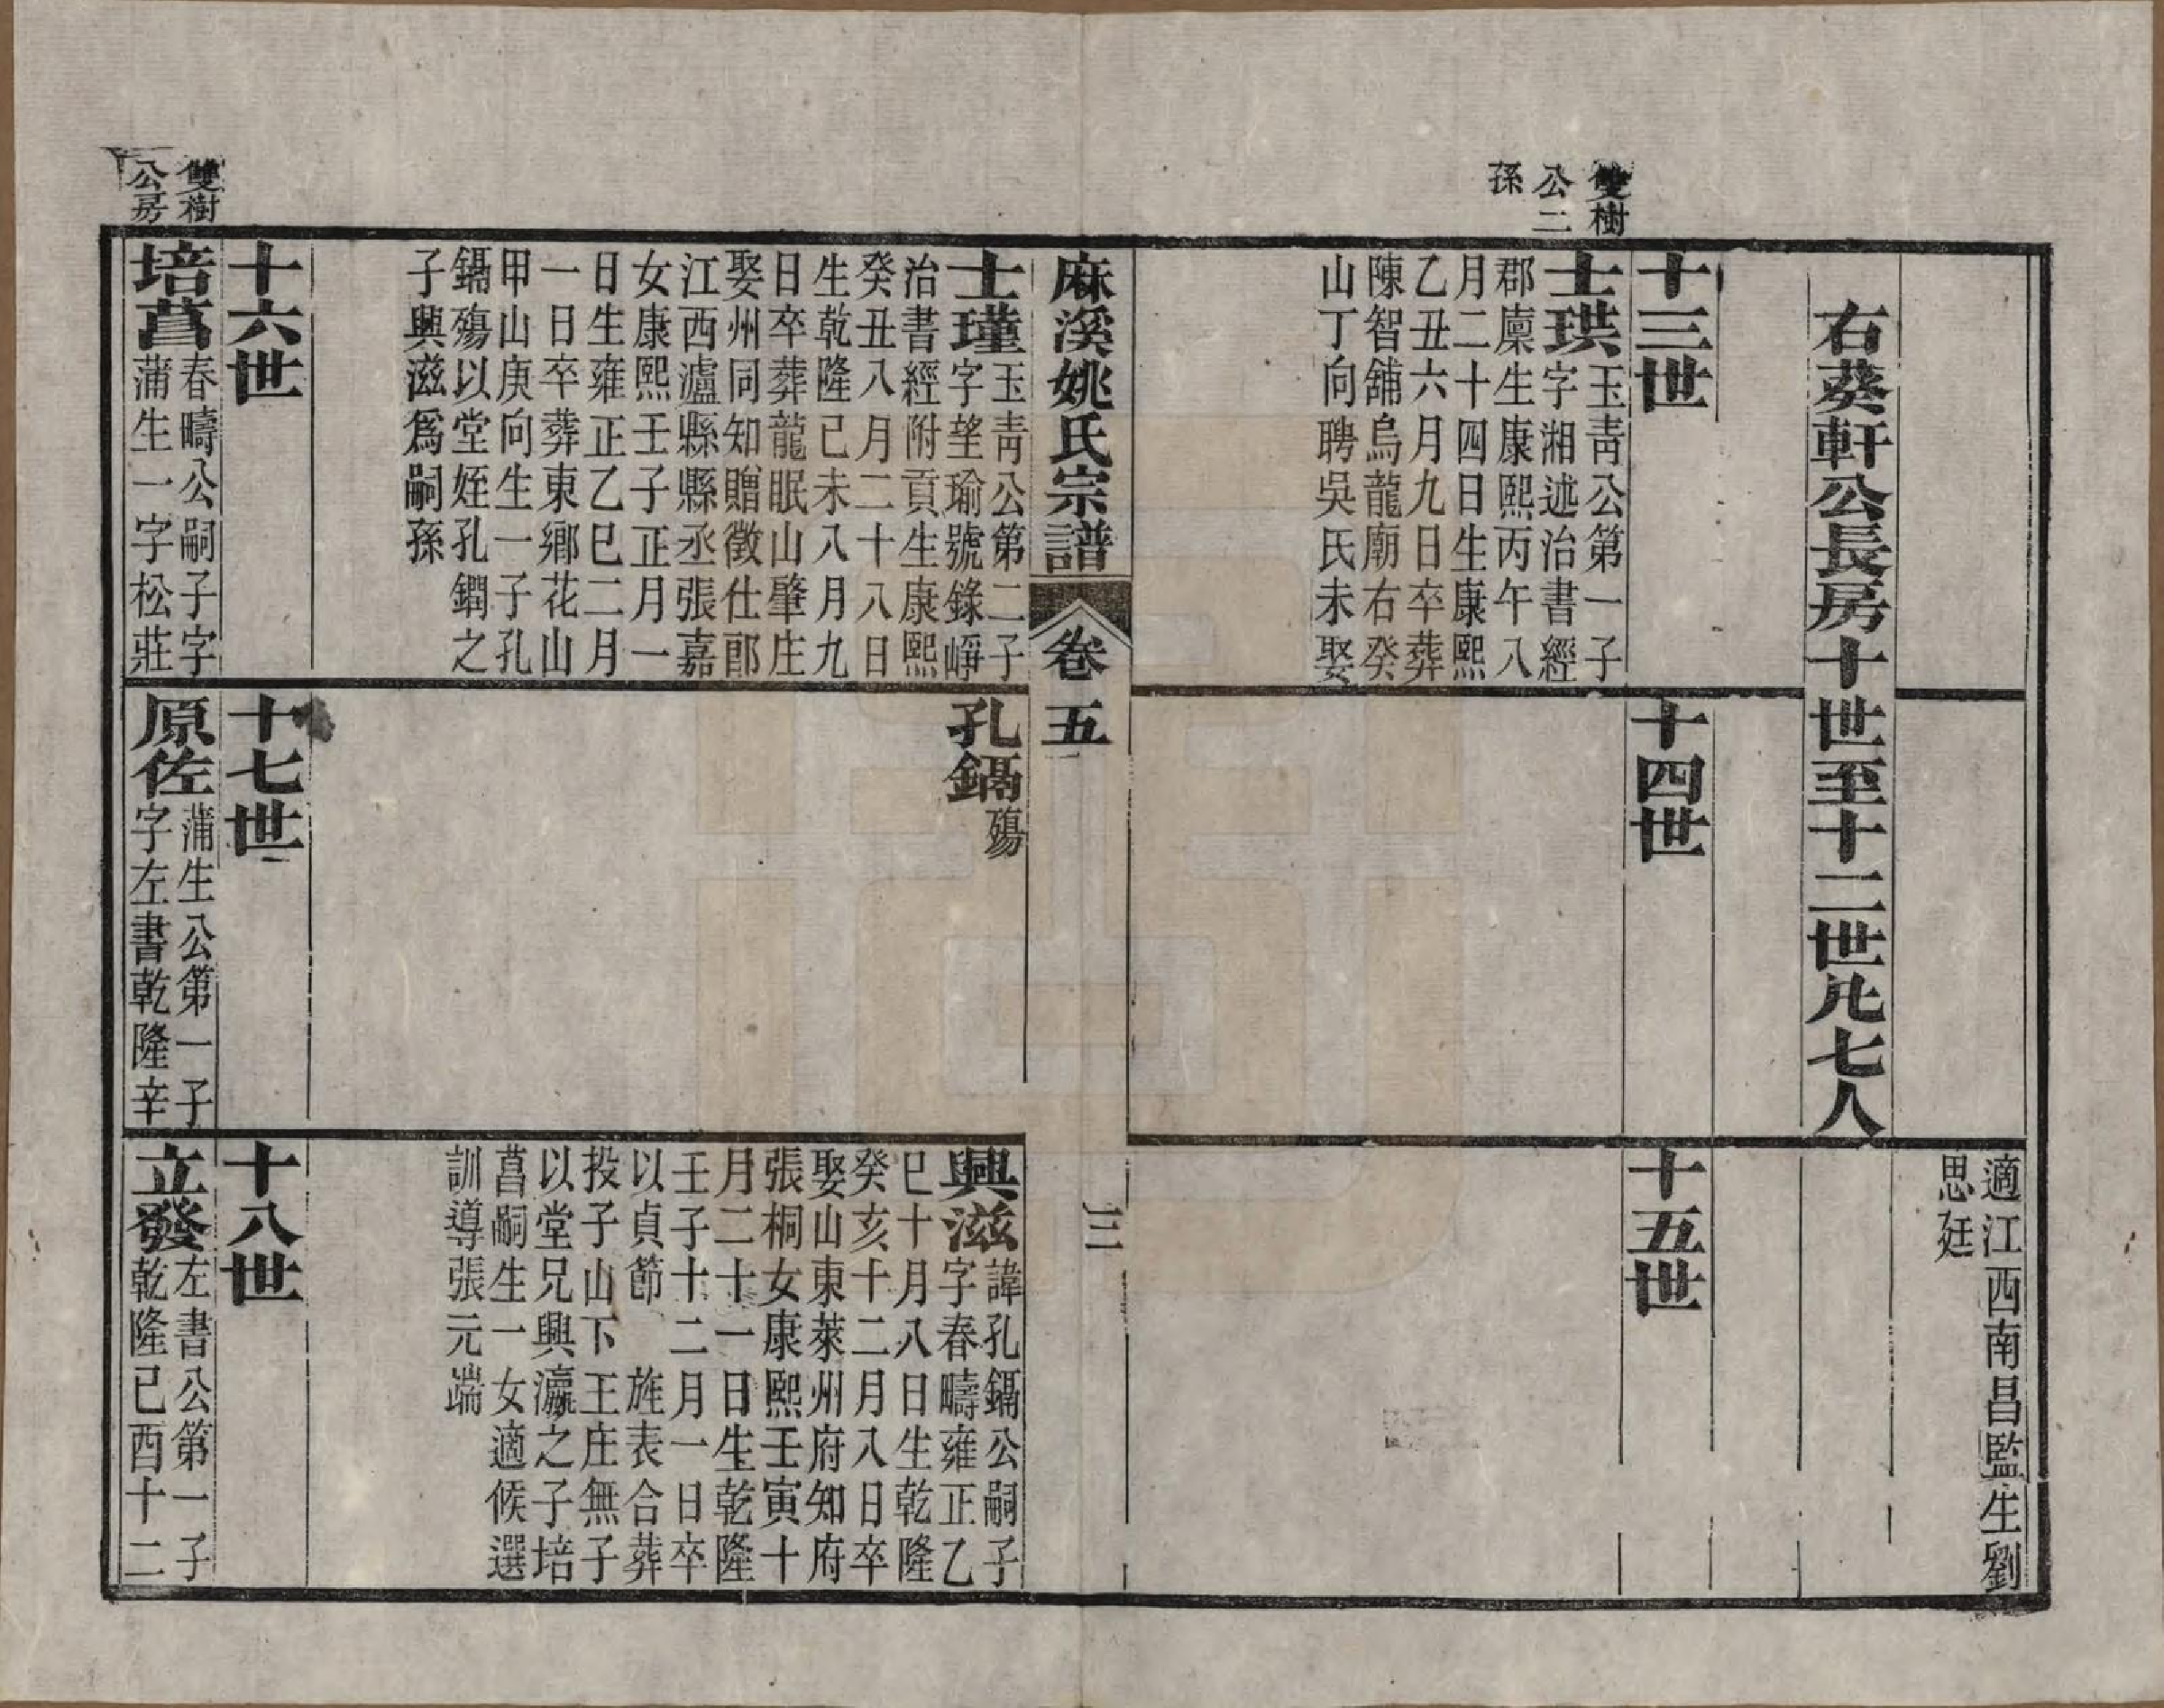 適江西南昌監生劉
思廷
右葵軒公長房十世至十二世凡七人
雙樹
公二
孫
十三世
士珙
玉靑公第一子
字湘述治書經
郡廩生康熙丙午八
月二十四日生康熙
乙丑六月九日卒葬
陳智舖烏龍廟右癸
山丁向聘吳氏未娶
十四世
十五世
麻溪姚氏宗譜
卷五
三
士瑾
玉靑公第二子
字望瑜號錄崢
治書經附貢生康熙
癸丑八月二十八日
生乾隆己未八月九
日卒葬龍眠山肇庄
娶州同知贈徵仕郎
江西瀘縣縣丞張嘉
女康熙壬子正月一
日生雍正乙巳二月
一日卒葬東鄉花山
甲山庚向生一子孔
鑷殤以堂姪孔鐗之
子興滋爲嗣孫
孔鑷
殤
興滋
諱孔鑷公嗣子
字春疇雍正乙
巳十月八日生乾隆
癸亥十二月八日卒
娶山東萊州府知府
張桐女康熙壬寅十
月二十一日生乾隆
壬子十二月一日卒
以貞節 旌表合葬
投子山下王庄無子
以堂兄興瀛之子培
菖嗣生一女適候選
訓導張元端
雙樹
公房
十六世
培菖
春疇公嗣子字
蒲生一字松莊
十七世
原佐
蒲生公第一子
字左書乾隆辛
十八世
立發
左書公第一子
乾隆己酉十二